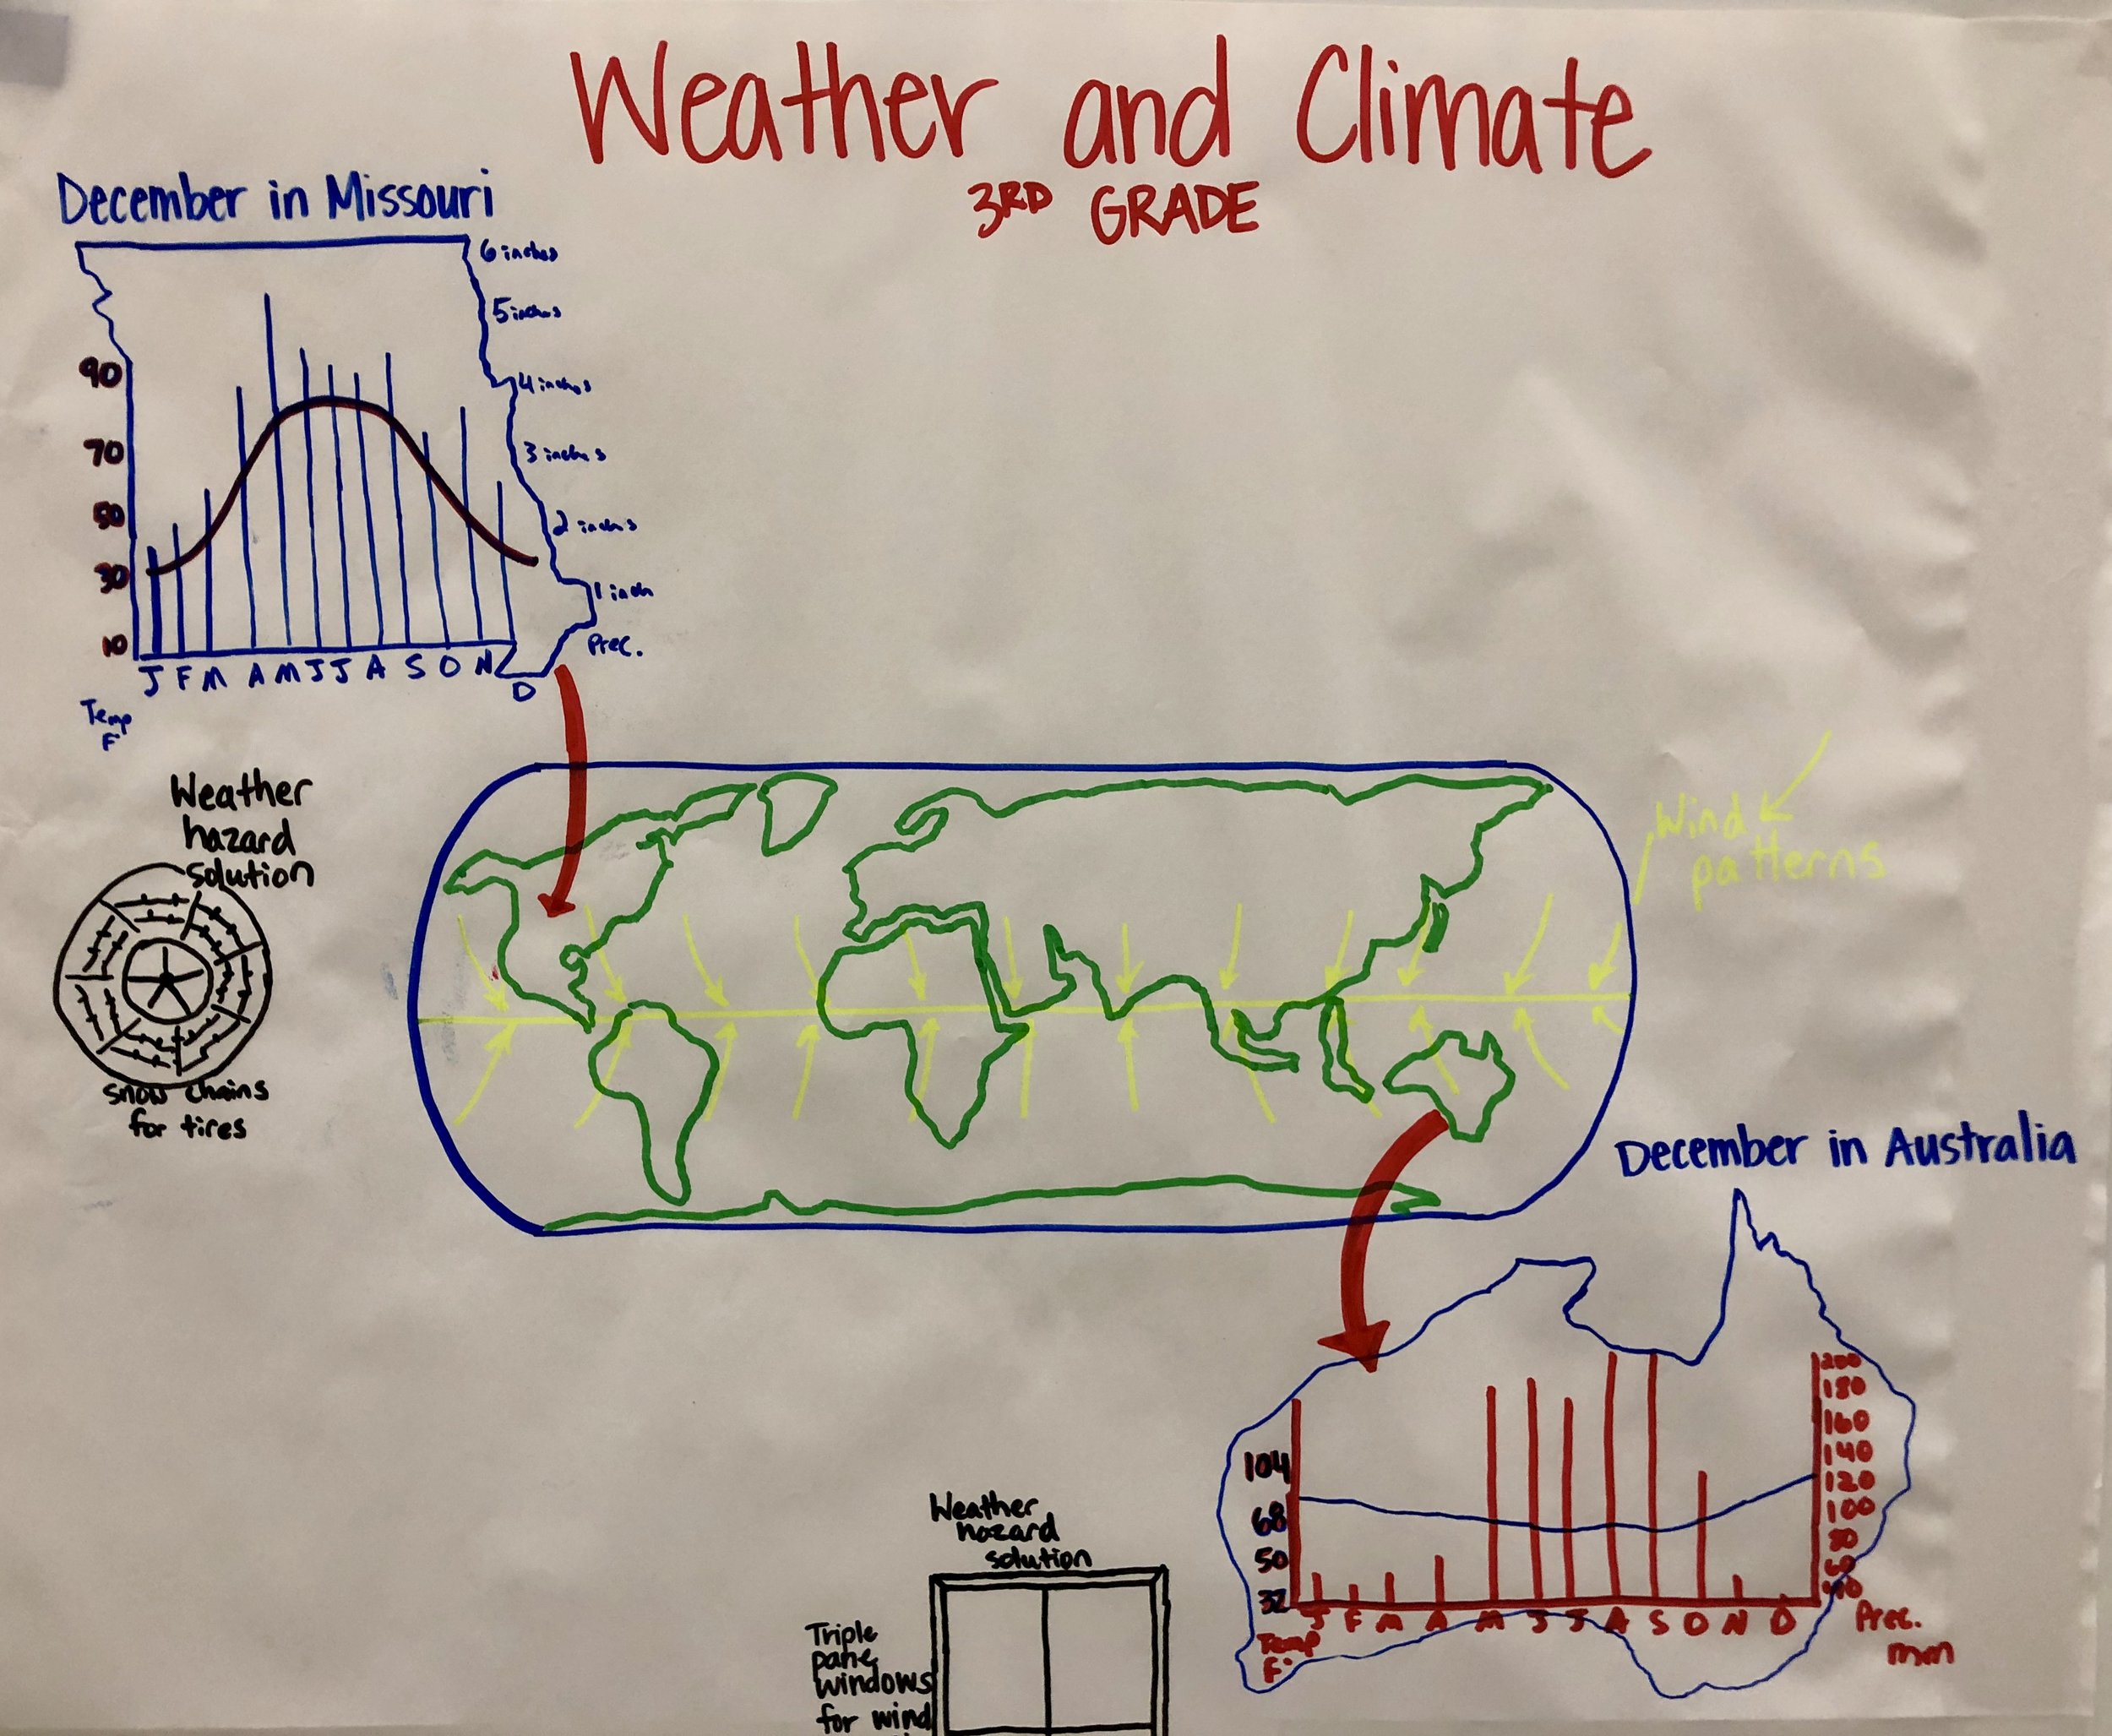 Weather and Climate
3RD GRADE
December in Missouri
6 inches
5 inches
4 inches
3 inches
2 inches
1 inch
Prec.
90
70
50
30
10
J F M A M J J A S O N D
Temp
F°
Weather
hazard
solution
snow chains
for tires
Wind
patterns
December in Australia
200
180
160
140
120
100
80
60
40
Prec.
mm
104
68
50
32
J F M A M J J A S O N D
Temp
F°
Weather
hazard
solution
Triple
pane
windows
for wind